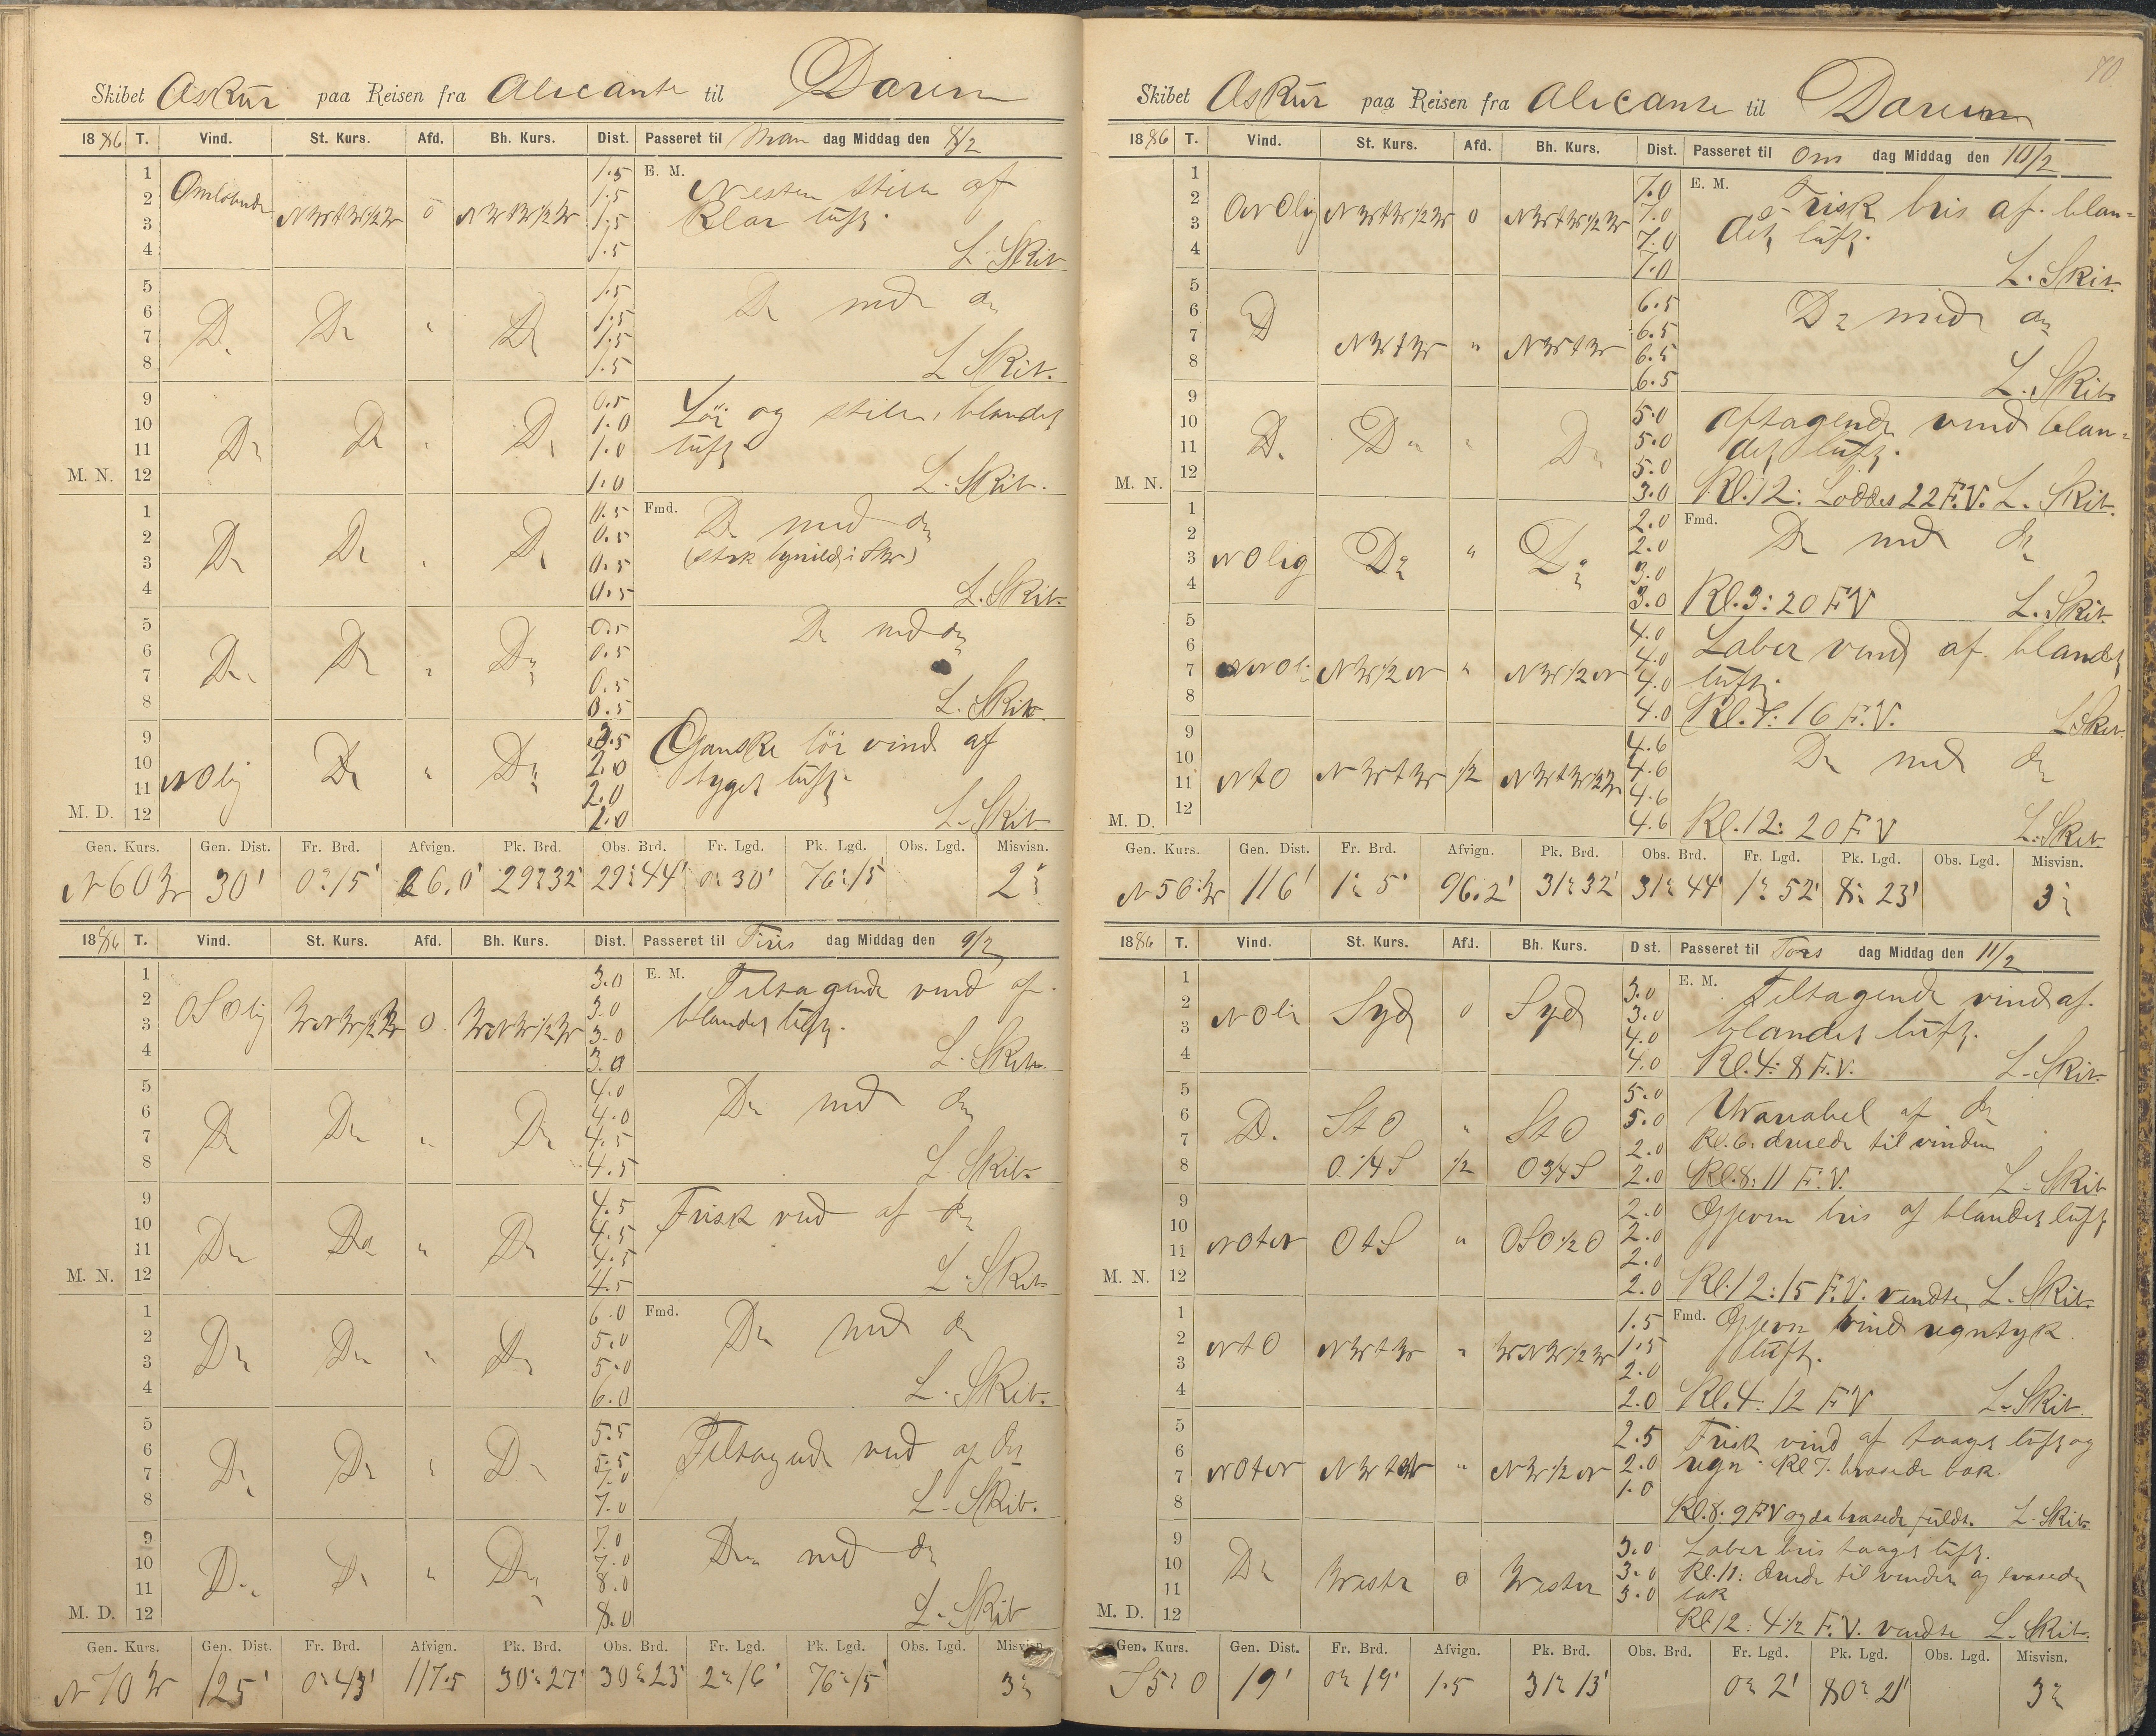 Skibet Askur paa Reisen fra Alicante til Darien
1886 T. Vind. St. Kurs. Afd. Bh. Kurs. Dist. Passeret til Man dag Middag den 8/2
1 1.5 E. M. Nesten stille af
2 Omløbende 1.5 klar luft.
3 NWtW½W 0 NWtW½W 1.5
4 1.5 L. Skib.
5 1.5 Do med do
6 1.5
7 Do Do " Do 1.5
8 1.5 L. Skib.
9 0.5 Lör og stille, blandet
10 1.0 luft
11 Do Do " Do 1.0
M. N. 12 1.0 L. Skib.
1 0.5 Fmd. Do med do
2 0.5
3 Do Do " Do 0.5
4 0.5 L. Skib.
5 0.5 Do med do
6 0.5
7 Do Do " Do 0.5
8 0.5 L. Skib.
9 Ganske lör vind af
10 2.0 byget luft.
11 NOlig Do " Do 2.0
M. D. 12 2.0 L. Skib.
Gen. Kurs. Gen. Dist. Fr. Brd. Afvign. Pk. Brd. Obs. Brd. Fr. Lgd. Pk. Lgd. Obs. Lgd. Misvisn.
N60W 30' 0°15' 26.0' 29°32' 29°44' 0°30' 76°15' 2°
1886 T. Vind. St. Kurs. Afd. Bh. Kurs. Dist. Passeret til Tirs dag Middag den 9/2
1 3.0 E. M. Tiltagende vind af
2 3.0 blandet luft.
3 OSOlig WNW½W 0 WNW½W 3.0
4 3.0 L. Skib.
5 4.0 Do med do
6 4.0
7 Do Do " Do 4.5
8 4.5 L. Skib.
9 4.5 Frisk vind af do
10 4.5
11 Do Do " Do 4.5
M. N. 12 4.5 L. Skib.
1 6.0 Fmd. Do med do
2 5.0
3 Do Do " Do 5.0
4 6.0 L. Skib.
5 5.5 Tiltagende vind af do
6 5.5
7 Do Do " Do 7.0
8 7.0 L. Skib.
9 7.0 Do med do
10 7.0
11 Do Do " Do 8.0
M. D. 12 8.0 L. Skib
Gen. Kurs. Gen. Dist. Fr. Brd. Afvign. Pk. Brd. Obs. Brd. Fr. Lgd. Pk. Lgd. Obs. Lgd. Misvisn.
N70W 125' 0°43' 117.5 30°27' 30°23' 2°16' 76°15' 3°
70
Skibet Askur paa Reisen fra Alicante til Darien
1886 T. Vind. St. Kurs. Afd. Bh. Kurs. Dist. Passeret til Ons dag Middag den 10/2
1 7.0 E. M. Frisk bris af blan=
2 7.0 det luft.
3 NWtW½W 0 NWtW½W 7.0
4 7.0 L. Skib.
5 6.5 Do med do
6 Do 6.5
7 NWtW " NWtW 6.5
8 6.5 L. Skib.
9 5.0 Aftagende vind blan=
10 5.0 det luft.
11 Do Do " Do 5.0
M. N. 12 3.0 Kl. 12: Loddes 22 F.V. L. Skib.
1 2.0 Fmd. Do med do
2 2.0
3 NOlig Do " Do 3.0
4 3.0 Kl. 3: 20 FV L. Skib.
5 4.0 Laber vind af blandet
6 4.0 luft.
7 NW½N " NW½N 4.0
8 4.0 16 F.V. L. Skib.
9 4.6 Do med do
10 4.6
11 NtO NWtW ½ NWtW½W 4.6
M. D. 12 4.6 Kl. 12: 20 FV L. Skib.
Gen. Kurs. Gen. Dist. Fr. Brd. Afvign. Pk. Brd. Obs. Brd. Fr. Lgd. Pk. Lgd. Obs. Lgd. Misvisn.
N56W 116' 1° 5' 96.2' 31°32' 31°44' 1°52' 8° 23' 3°
1886 T. Vind. St. Kurs. Afd. Bh. Kurs. Dist. Passeret til Tors dag Middag den 11/2
1 3.0 E. M. Tiltagende vind af
2 3.0 blandet luft.
3 NOli Syd 0 Syd 4.0
4 4.0 Kl. 4: 8 F.V. L. Skib.
5 5.0 Variabel af do
6 5.0 Kl. 6: dreiede til vinden
7 Do StO " StO 2.0
8 O¼S ½ O¾S 2.0 Kl. 8: 11 F.V. L. Skib
9 2.0 Gjevn bris af blandet luft
10 2.0
11 NOtN OtS " OSO½O 2.0
M. N. 12 2.0 Kl. 12: 15 F.V. vendte L. Skib.
1 1.5 Fmd. Gjevn vind regntyk
2 1.5 luft.
3 NtO NWtW " WNW½W 2.0
4 2.0 Kl. 4: 12 FV L. Skib.
5 2.5 Frisk vind af taaget luft og
6 2.0 regn. Kl 7. brasede bak.
7 NOtN NWtW " NW½N 1.0
8 Kl. 8: 9 FV og da brasede fuldt. L. Skib
9 3.0 Laber bris taaget luft.
10 3.0 Kl. 11: dreiede til vinden og brasede
11 Do Vester 0 Vester 3.0 bak
M. D. 12 Kl 12: 4½ F.V. vendte L. Skib.
Gen. Kurs. Gen. Dist. Fr. Brd. Afvign. Pk. Brd. Obs. Brd. Fr. Lgd. Pk. Lgd. Obs. Lgd. Misvisn.
S5°O 19' 0° 19' 1.5 31° 13' 0° 2' 80° 21' 3°